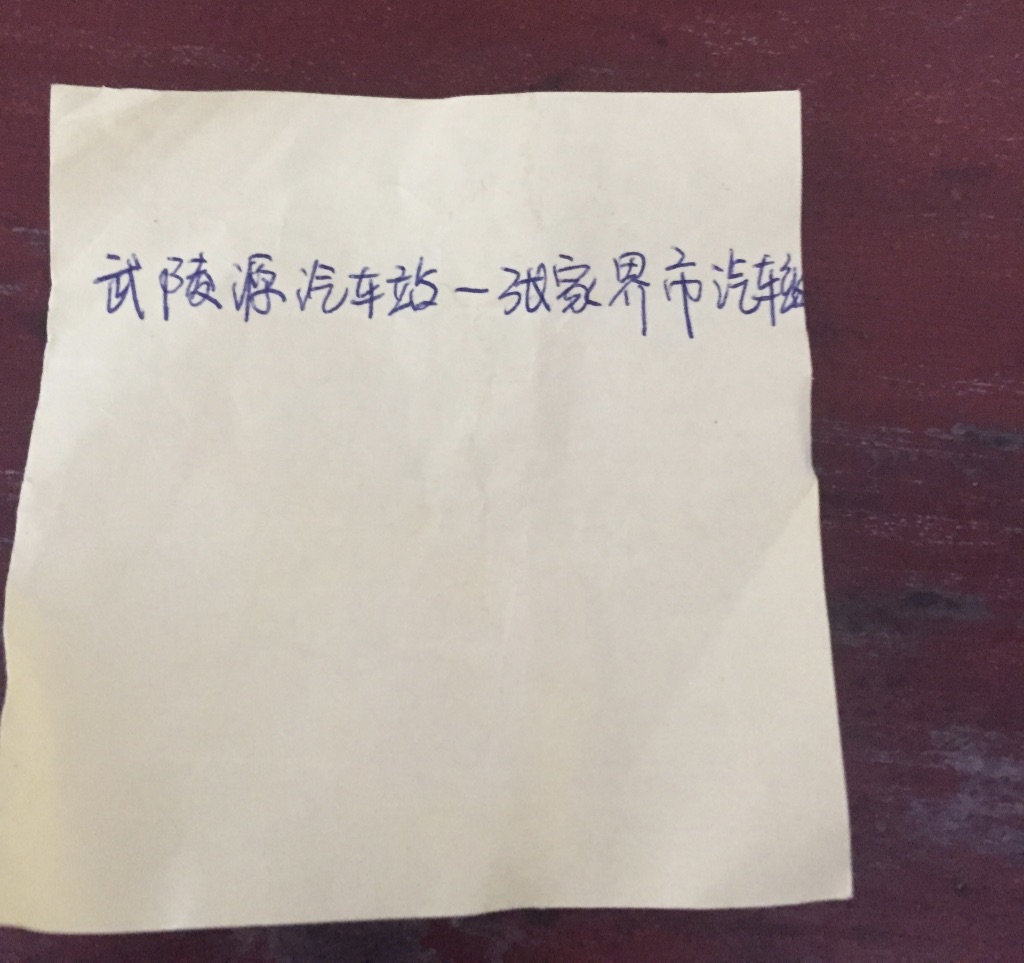 武陵源汽车站一张家界市汽车站